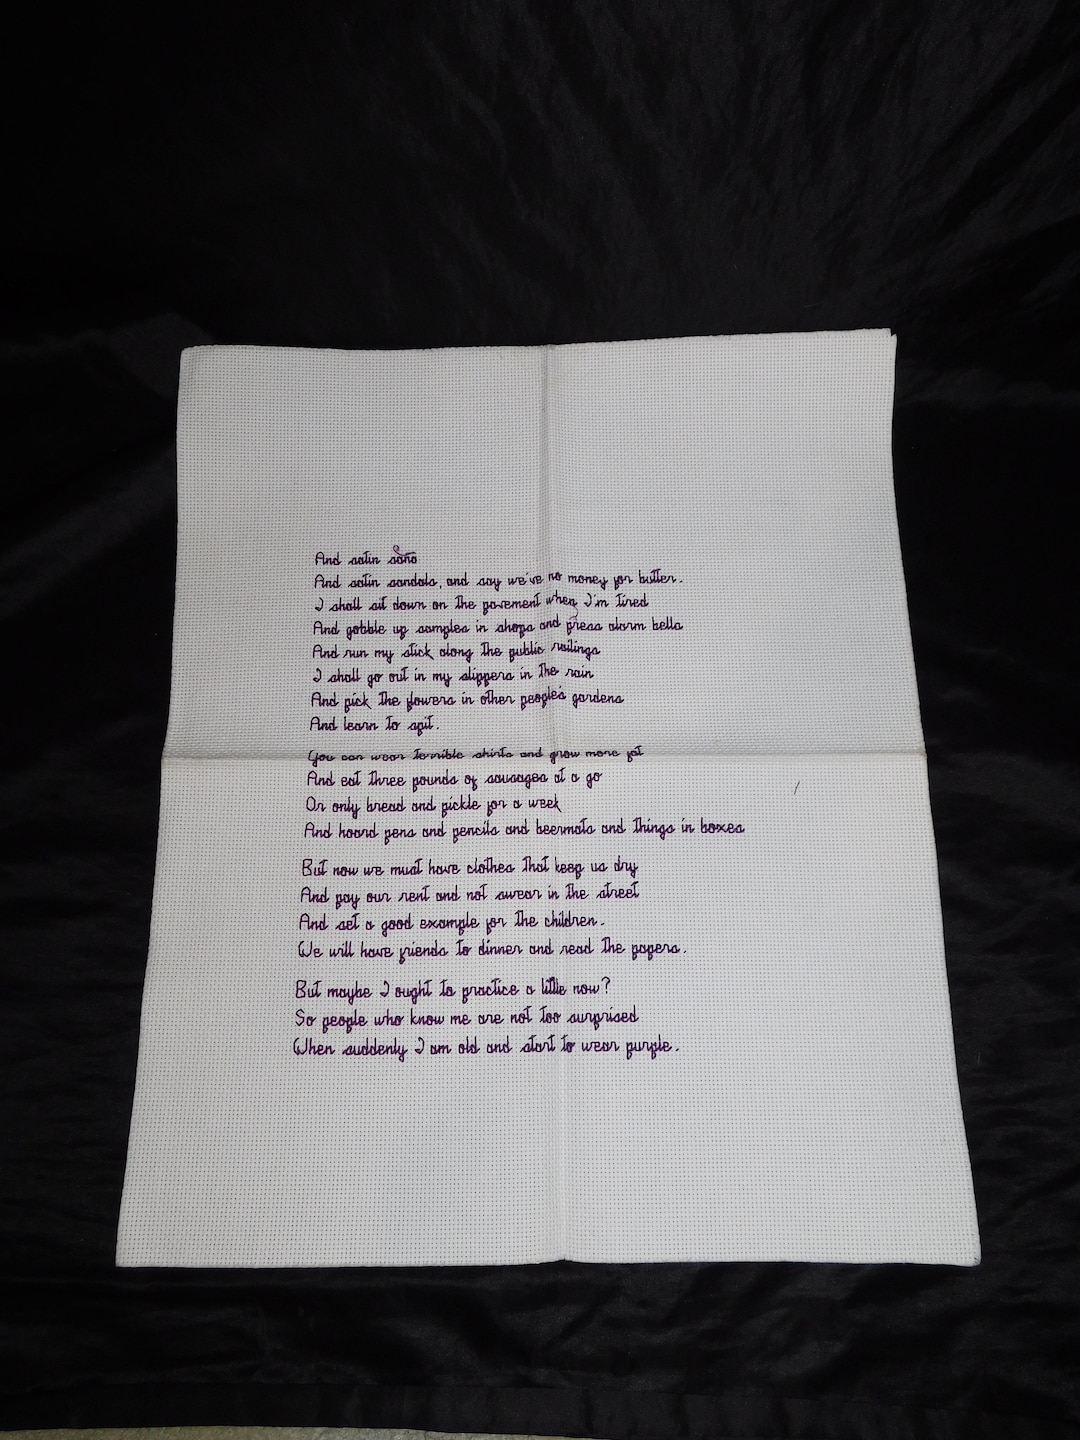 And satin sans
And satin sandals, and say we've no money for butter.
I shall sit down on the pavement when I'm tired
And gobble up samples in shops and press alarm bells
And run my stick along the public railings
I shall go out in my slippers in the rain
And pick the flowers in other people's gardens
And learn to spit.
You can wear terrible shirts and grow more fat
And eat three pounds of sausages at a go
Or only bread and pickle for a week
And hoard pens and pencils and beermats and things in boxes
But now we must have clothes that keep us dry
And pay our rent and not swear in the street
And set a good example for the children.
We will have friends to dinner and read the papers.
But maybe I ought to practice a little now?
So people who know me are not too surprised
When suddenly I am old and start to wear purple.